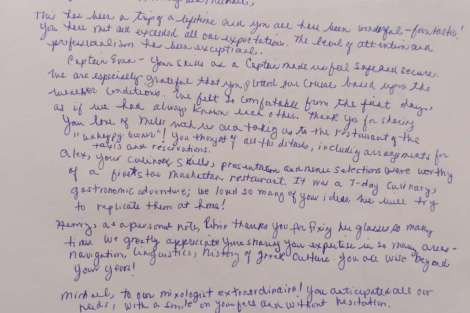 This has been a trip of a lifetime and you all have been wonderful - fantastic!
You have met and exceeded all our expectations. The level of attention and
professionalism has been exceptional.
Captain Evan - Your skills as a Captain made us feel safe and secure.
We are especially grateful that you our cruise based upon the
weather conditions. We felt so comfortable from the first day,
as if we had always known each other. Thank you for sharing
your love of with us and taking us to the restaurant of the
"unhappy owner"! You thought of all the details, including arrangements for
taxis and reservations.
Alex, your culinary skills, presentation and menu selections were worthy
of a first rate Manhattan restaurant. It was a 7-day culinary,
gastronomic adventure; we loved so many of your ideas we will try
to replicate them at home!
as a personal note, thanks you for fixing his glasses so many
times. We greatly appreciate your sharing your expertise in so many areas -
navigation, linguistics, history of Greek culture. You are wise beyond
your years!
Michael, to our mixologist extraordinaire! You anticipated all our
needs, with a smile on your face and without hesitation.